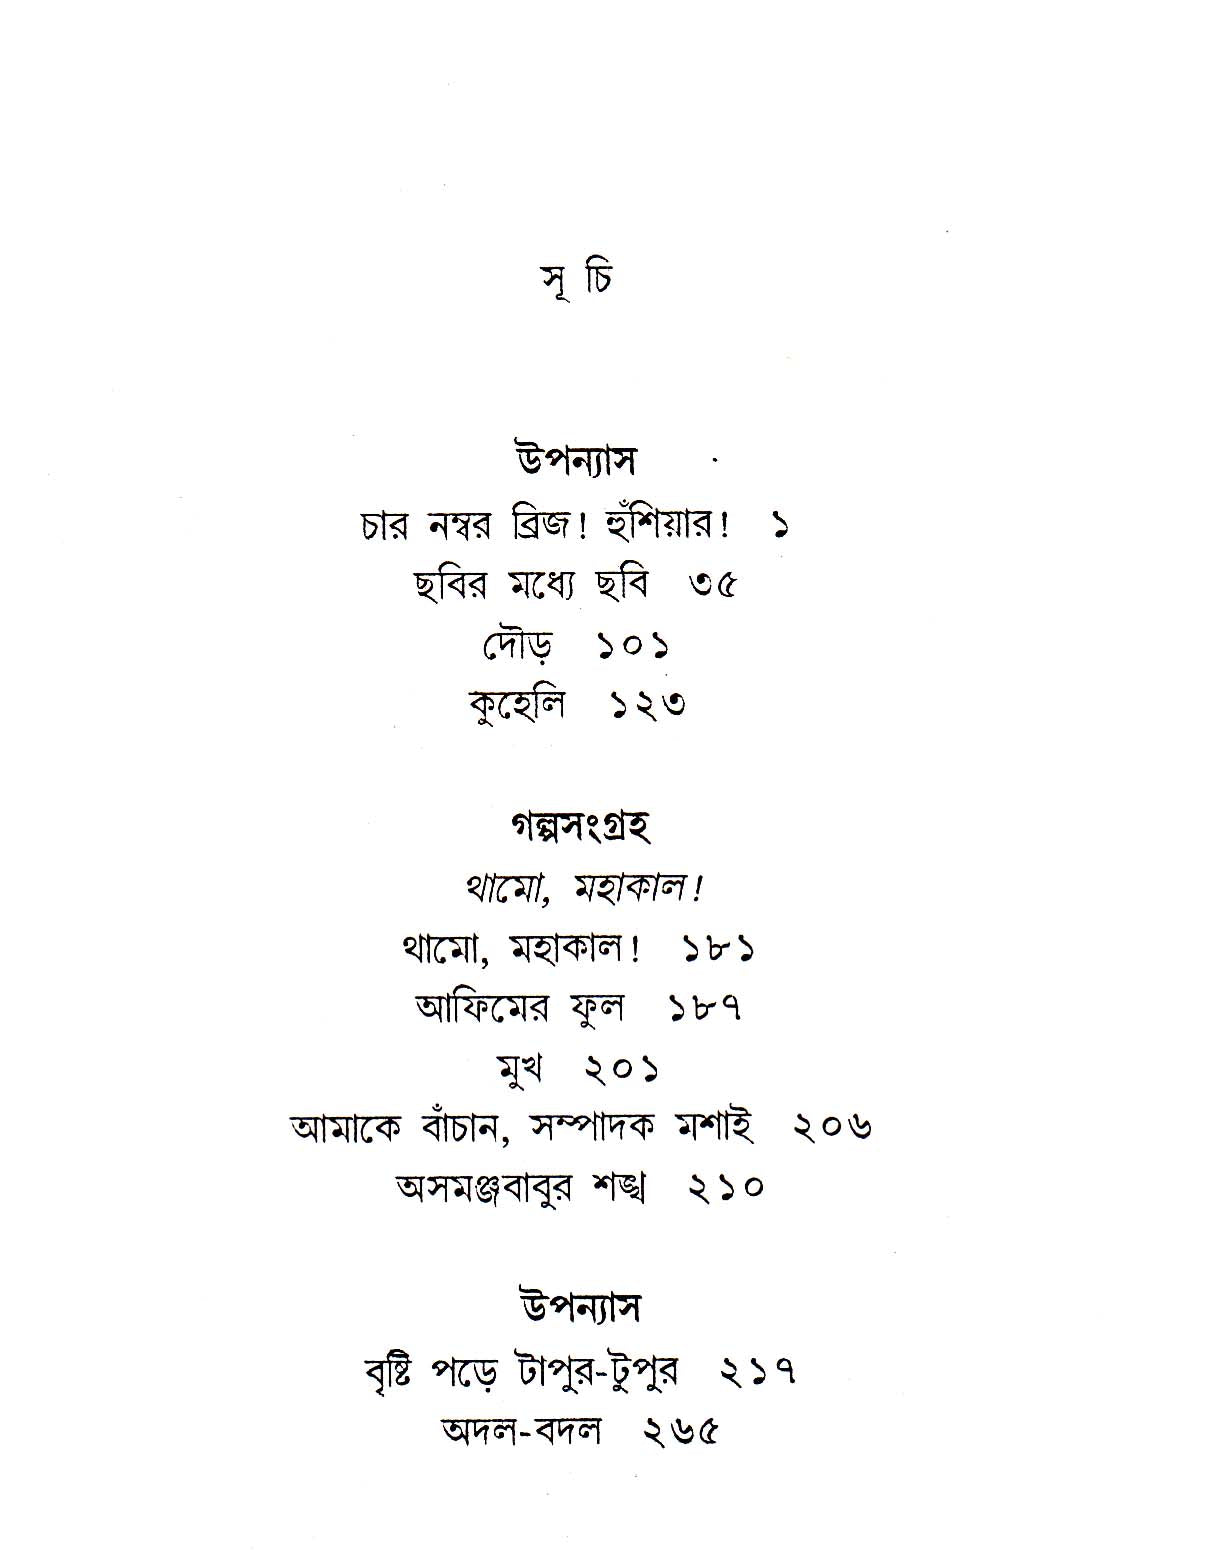 সূ চি
উপন্যাস
চার নম্বর ব্রিজ! হুঁশিয়ার! ১
ছবির মধ্যে ছবি ৩৫
দৌড় ১০১
কুহেলি ১২৩
গল্পসংগ্রহ
থামো, মহাকাল!
থামো, মহাকাল! ১৮১
আফিমের ফুল ১৮৭
মুখ ২০১
আমাকে বাঁচান, সম্পাদক মশাই ২০৬
অসমঞ্জবাবুর শঙ্খ ২১০
উপন্যাস
বৃষ্টি পড়ে টাপুর-টুপুর ২১৭
অদল-বদল ২৬৫